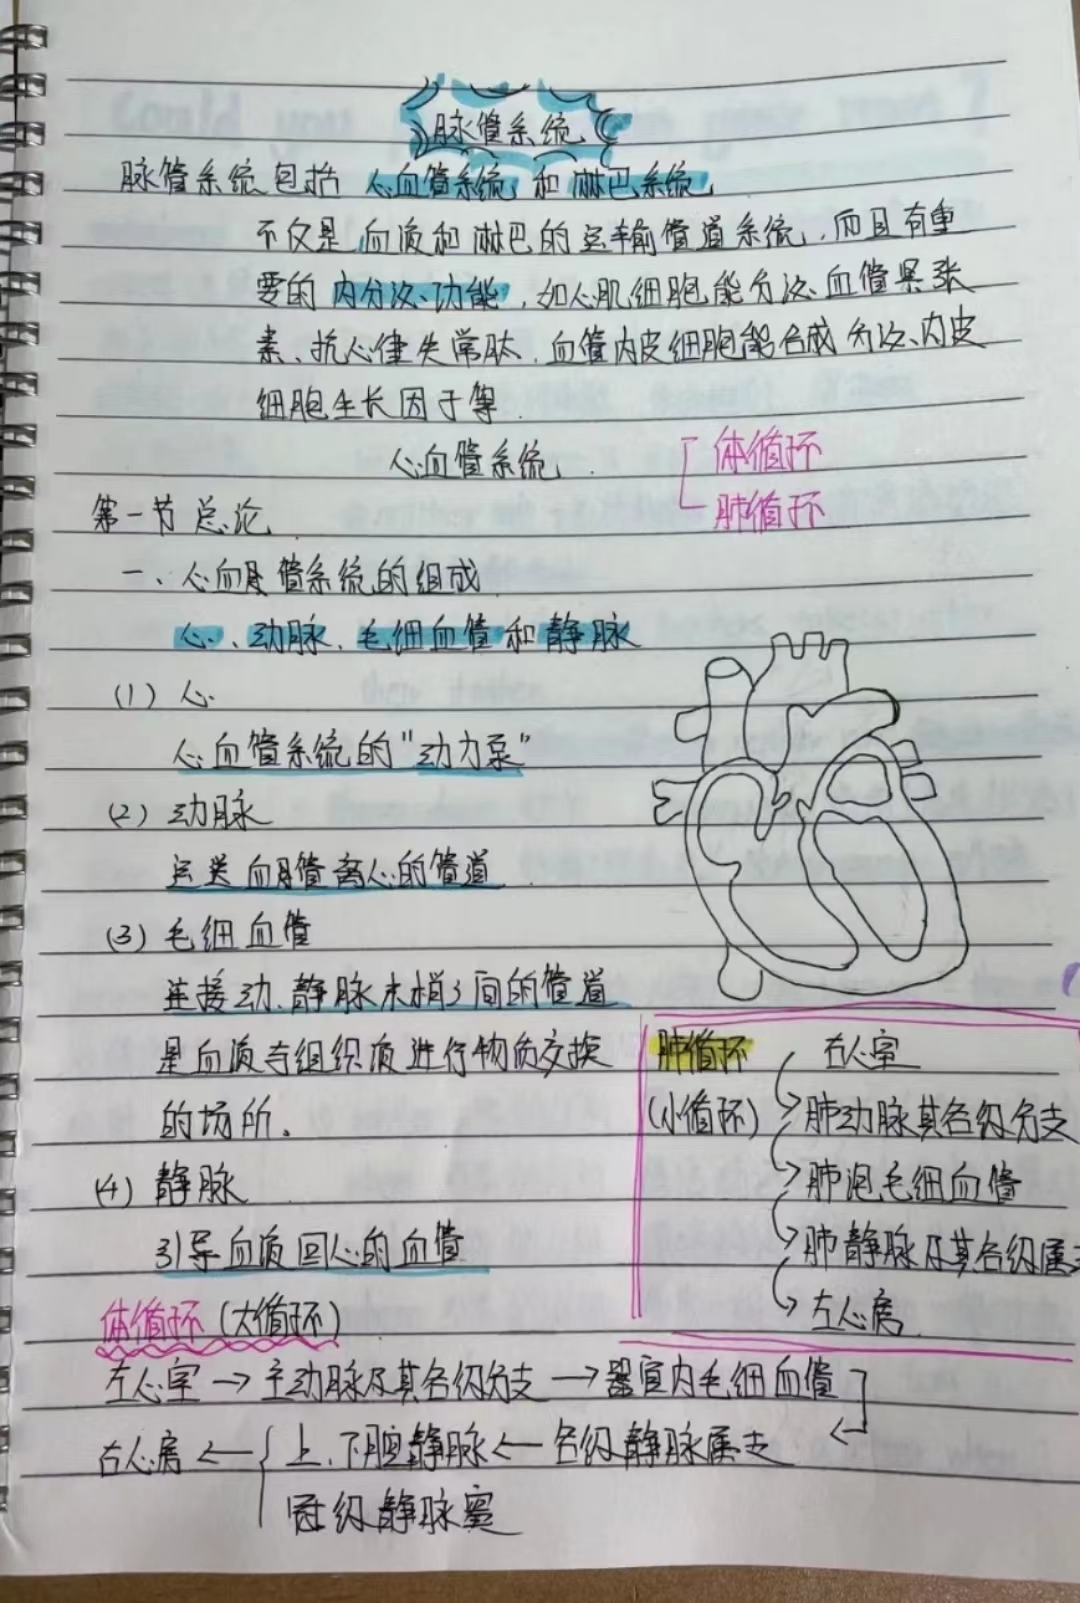 脉管系统
脉管系统包括 心血管系统 和 淋巴系统
不仅是血液和淋巴的运输管道系统,而且有重
要的内分泌功能,如心肌细胞能分泌血管紧张
素、抗心律失常肽,血管内皮细胞能合成分泌内皮
细胞生长因子等.
心血管系统
体循环
肺循环
第一节 总论
一、心血管系统的组成
心、动脉、毛细血管和静脉
(1) 心
心血管系统的"动力泵"
(2) 动脉
运送血管离心的管道
(3) 毛细血管
连接动、静脉末梢之间的管道
是血液与组织液进行物质交换
的场所。
(4) 静脉
引导血液回心的血管
肺循环
(小循环)
右心室
肺动脉其各级分支
肺泡毛细血管
肺静脉及其各级属
左心房
体循环(大循环)
左心室→主动脉及其各级分支→器官内毛细血管
右心房←上、下腔静脉←各级静脉属支
冠级静脉窦